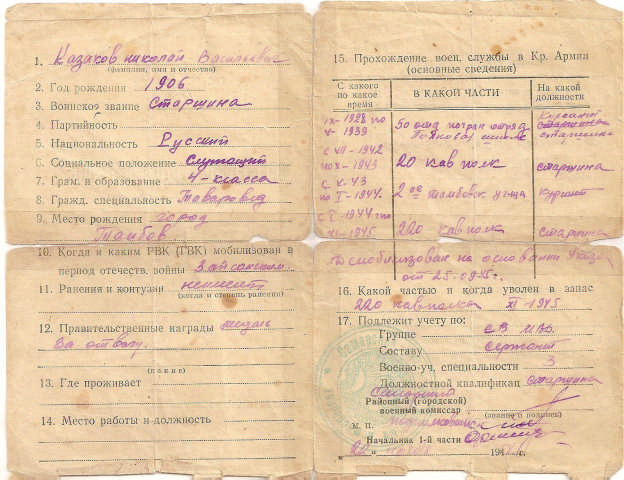 1. Казаков Николай Васильевич
(фамилия, имя и отчество)
2. Год рождения 1906
3. Воинское звание Старшина
4. Партийность
5. Национальность Русский
6. Социальное положение Служащий
7. Грам. и образование 4-класса
8. Гражд. специальность Таваровед
9. Место рождения город
Тамбов
10. Когда и каким РВК (ГВК) мобилизован в
период отечеств. войны
11. Ранения и контузии неимеет
(когда и степень ранения)
12. Правительственные награды медаль
За отвагу.
(какие)
13. Где проживает
14. Место работы и должность
15. Прохождение воен. службы в Кр. Армии
(основные сведения)
С какого по какое время
В КАКОЙ ЧАСТИ
На какой должности
IX-1928 по
V-1939
50 отд погран отряд
школа
Курсант
старшина
с VII-1942
по X-1943
20 кав полк
старшина
с X-43
по I-1944.
2 ое Тамбовск
Курсант
с I-1944 по
XI-1945
220 кав полк
старшина
Демобилизован на основании Указа
от 25-09-45г.
16. Какой частью и когда уволен в запас
220 кав полка XI-1945
17. Подлежит учету по:
Группе
Составу сержант
Военно-уч. специальности 3
Должностной квалификац старшина
Районный (городской)
военный комиссар
(звание и подпись)
М. П. подполковник
Начальник 1-й части
194 г.